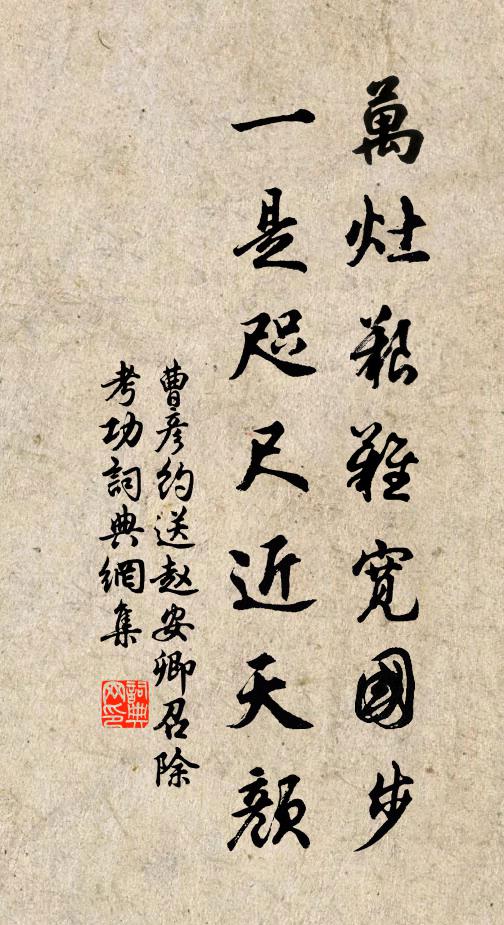 萬灶艱難寬國步
一是咫尺近天顏
曹彥約送赵安卿召除
考功詞典網集
詞典网印